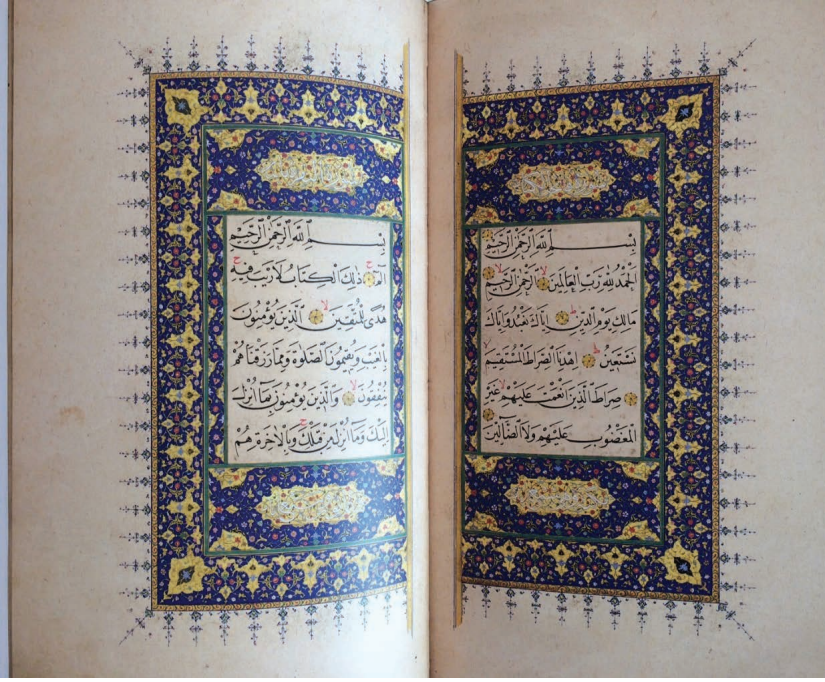 بِسْمِ ٱللَّهِ ٱلرَّحْمَٰنِ ٱلرَّحِيمِ
ٱلْحَمْدُ لِلَّهِ رَبِّ ٱلْعَالَمِينَ ٱلرَّحْمَٰنِ ٱلرَّحِيمِ
مَالِكِ يَوْمِ ٱلدِّينِ إِيَّاكَ نَعْبُدُ وَإِيَّاكَ
نَسْتَعِينُ ٱهْدِنَا ٱلصِّرَاطَ ٱلْمُسْتَقِيمَ
صِرَاطَ ٱلَّذِينَ أَنْعَمْتَ عَلَيْهِمْ غَيْرِ
ٱلْمَغْضُوبِ عَلَيْهِمْ وَلَا ٱلضَّالِّينَ
بِسْمِ ٱللَّهِ ٱلرَّحْمَٰنِ ٱلرَّحِيمِ
الٓمٓ ذَٰلِكَ ٱلْكِتَابُ لَا رَيْبَ فِيهِ
هُدًى لِلْمُتَّقِينَ ٱلَّذِينَ يُؤْمِنُونَ
بِٱلْغَيْبِ وَيُقِيمُونَ ٱلصَّلَوٰةَ وَمِمَّا رَزَقْنَاهُمْ
يُنْفِقُونَ وَٱلَّذِينَ يُؤْمِنُونَ بِمَا أُنْزِلَ
إِلَيْكَ وَمَا أُنْزِلَ مِنْ قَبْلِكَ وَبِٱلْآخِرَةِ هُمْ